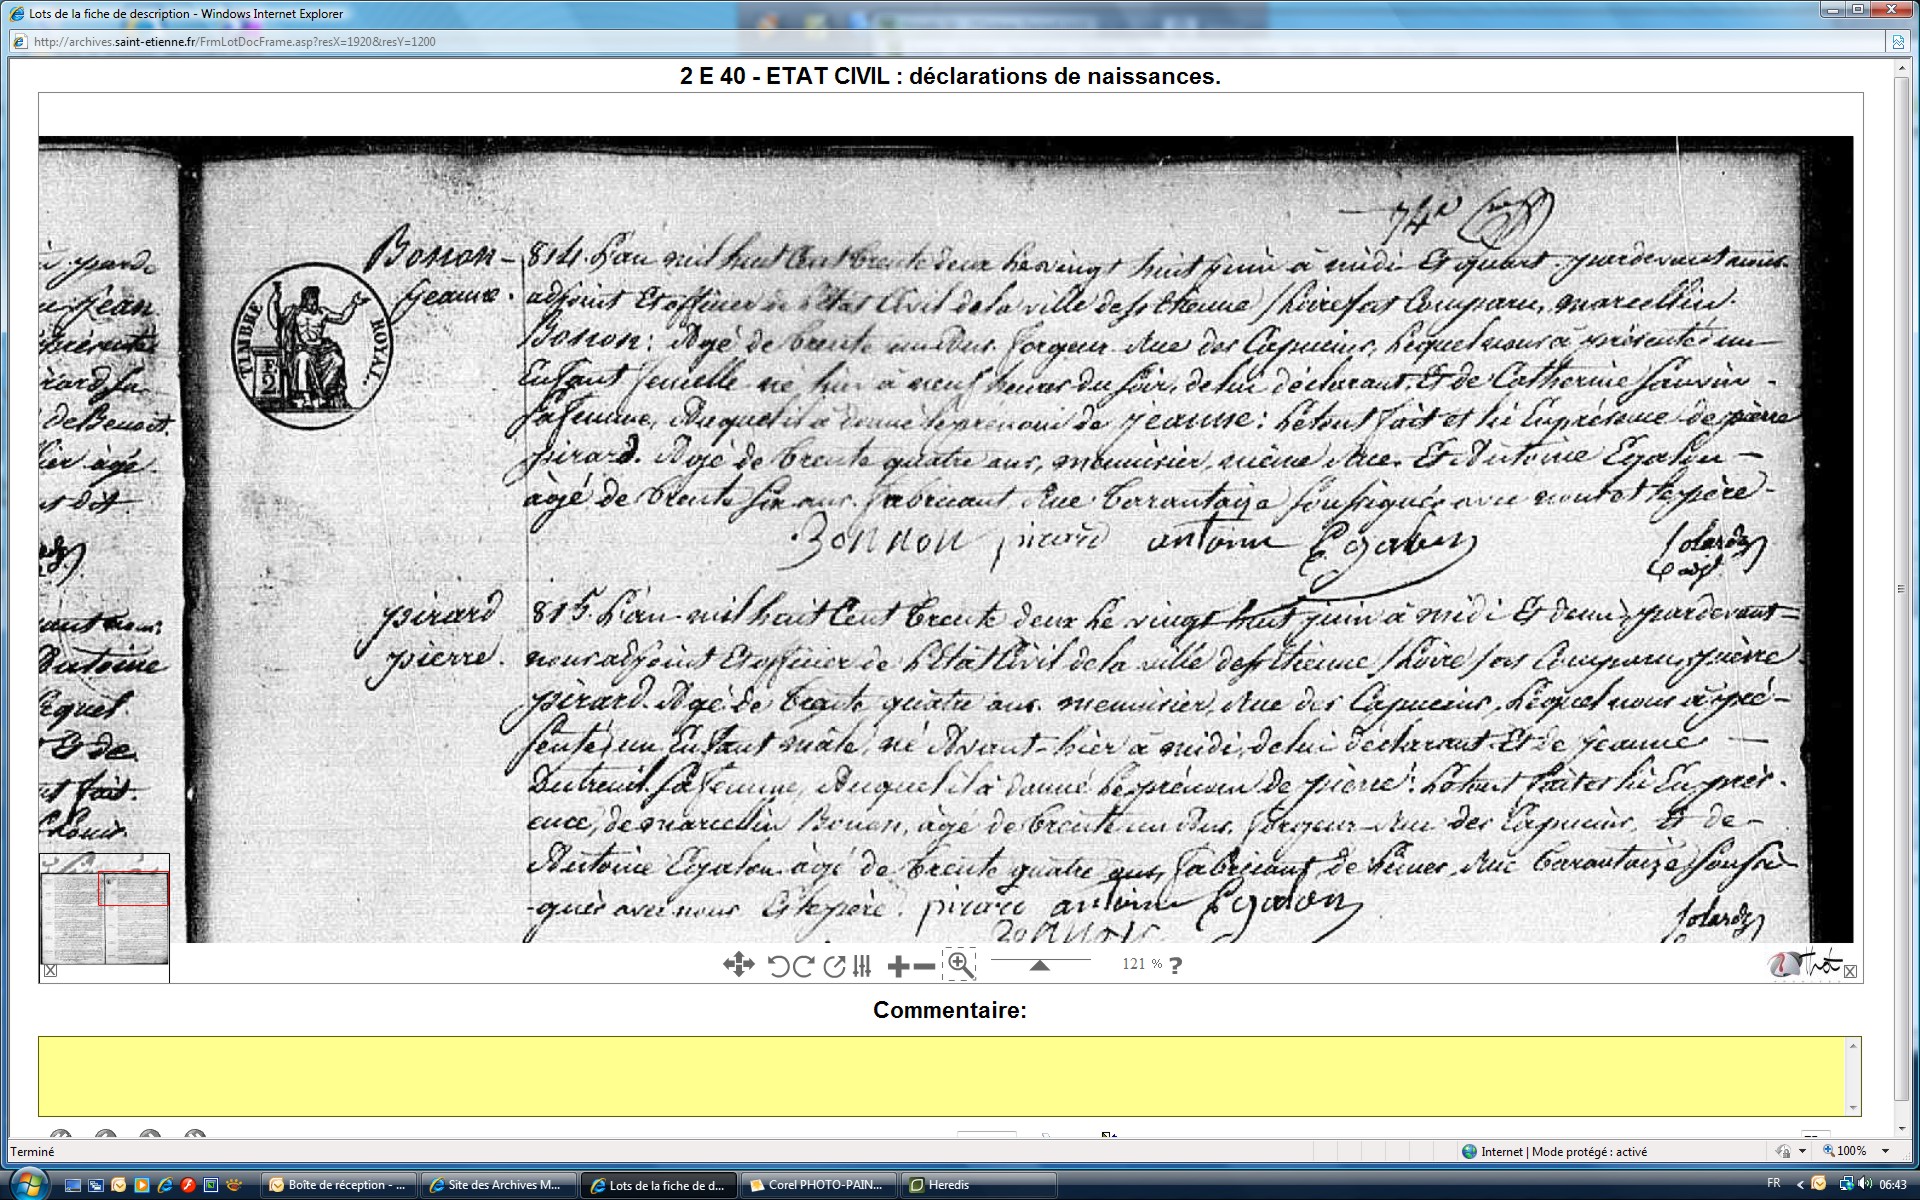 Lots de la fiche de description - Windows Internet Explorer
http://archives.saint-etienne.fr/FrmLotDocFrame.asp?resX=1920&resY=1200
2 E 40 - ETAT CIVIL : déclarations de naissances.
74e
Bonon
Jeanne.
TIMBRE ROYAL.
F.
2
814. L'an mil huit Cent trente deux Le vingt huit juin à midi Et quart pardevant nous
adjoint Et officier de L'Etat Civil de la ville de St Etienne /Loire/ est Comparu, marcellin
Bonon: Agé de trente un Ans. forgeur Rue des Capucins, Lequel nous à présenté un
Enfant femelle né hier à neuf heures du soir, de lui déclarant, Et de Catherine
sa femme, Auquel il à donné le prénom de jeanne: Le tout fait et lû En présence de pierre
pirard. Agé de trente quatre ans, menuisier, même Rue. Et Antoine Egalon
âgé de trente six ans. fabricant Rue tarantaize soussignés avec nous et le père
Bonnon pirard antoine Egalon
pirard
pierre.
815. L'an mil huit Cent trente deux Le vingt huit juin à midi Et demi, pardevant
nous adjoint Et officier de L'Etat Civil de la ville de St Etienne /Loire/ est Comparu, pierre
pirard. Agé de trente quatre ans. menuisier, Rue des Capucins, Lequel nous à pré-
senté, un Enfant mâle, né Avant-hier à midi, de lui déclarant Et de jeanne
Dutreuil. sa femme, Auquel il à donné Le prénom de pierre: Le tout fait et lû En prés-
ence, de marcellin Bonon, âgé de trente un Ans. forgeur Rue des Capucins, Et de
Antoine Egalon âgé de trente quatre ans, fabricant de Rue tarantaize soussi-
-gnés avec nous Et le père. pirard antoine Egalon
Bonnon
121 % ?
Commentaire:
Terminé
Internet | Mode protégé : activé
100%
Boîte de réception - ...
Site des Archives M...
Lots de la fiche de d...
Corel PHOTO-PAIN...
Heredis
FR
06:43